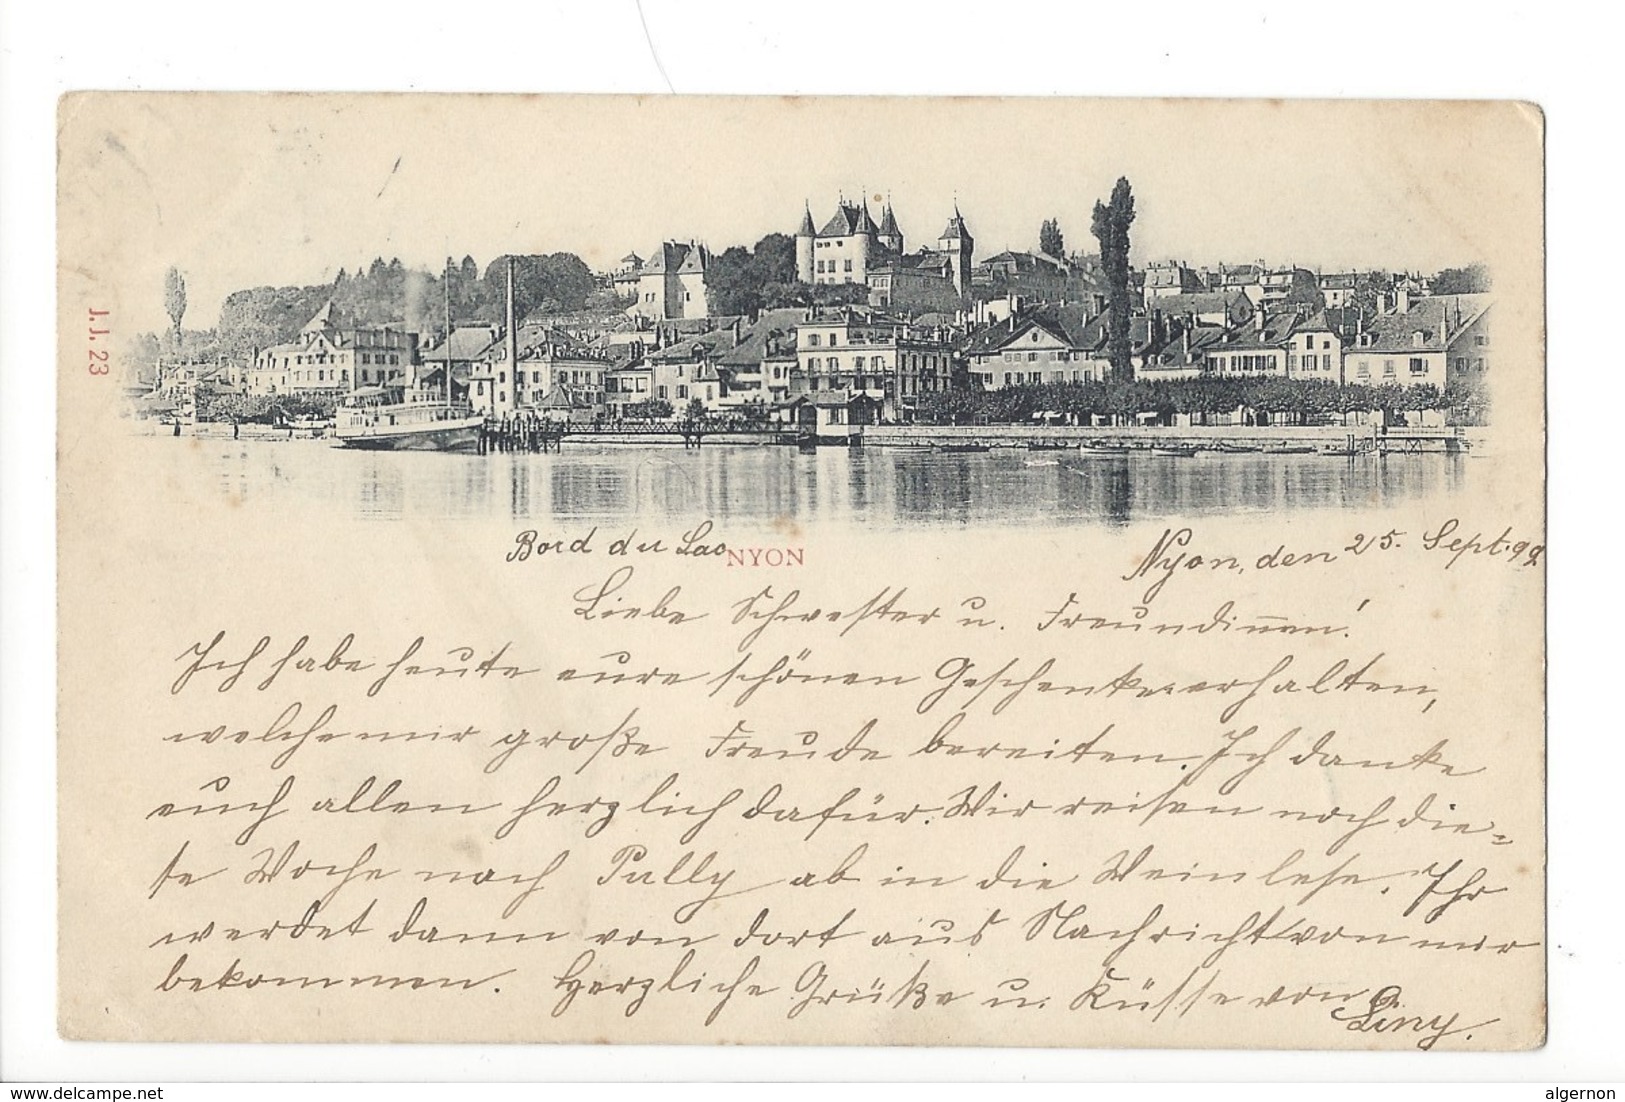 J.J. 23
Bord du Lac NYON
Nyon, den 25. Sept. 99
Liebe Schwester u. Freundinnen!
Ich habe heute eure schönen Geschenke erhalten,
welche mir große Freude bereiten. Ich danke
euch allen herzlich dafür. Wir reisen noch die=
se Woche nach Pully ab in die Weinlese. Ihr
werdet dann von dort aus Nachricht von mir
bekommen. Herzliche Grüße u. Küsse von
Liny.
algernon